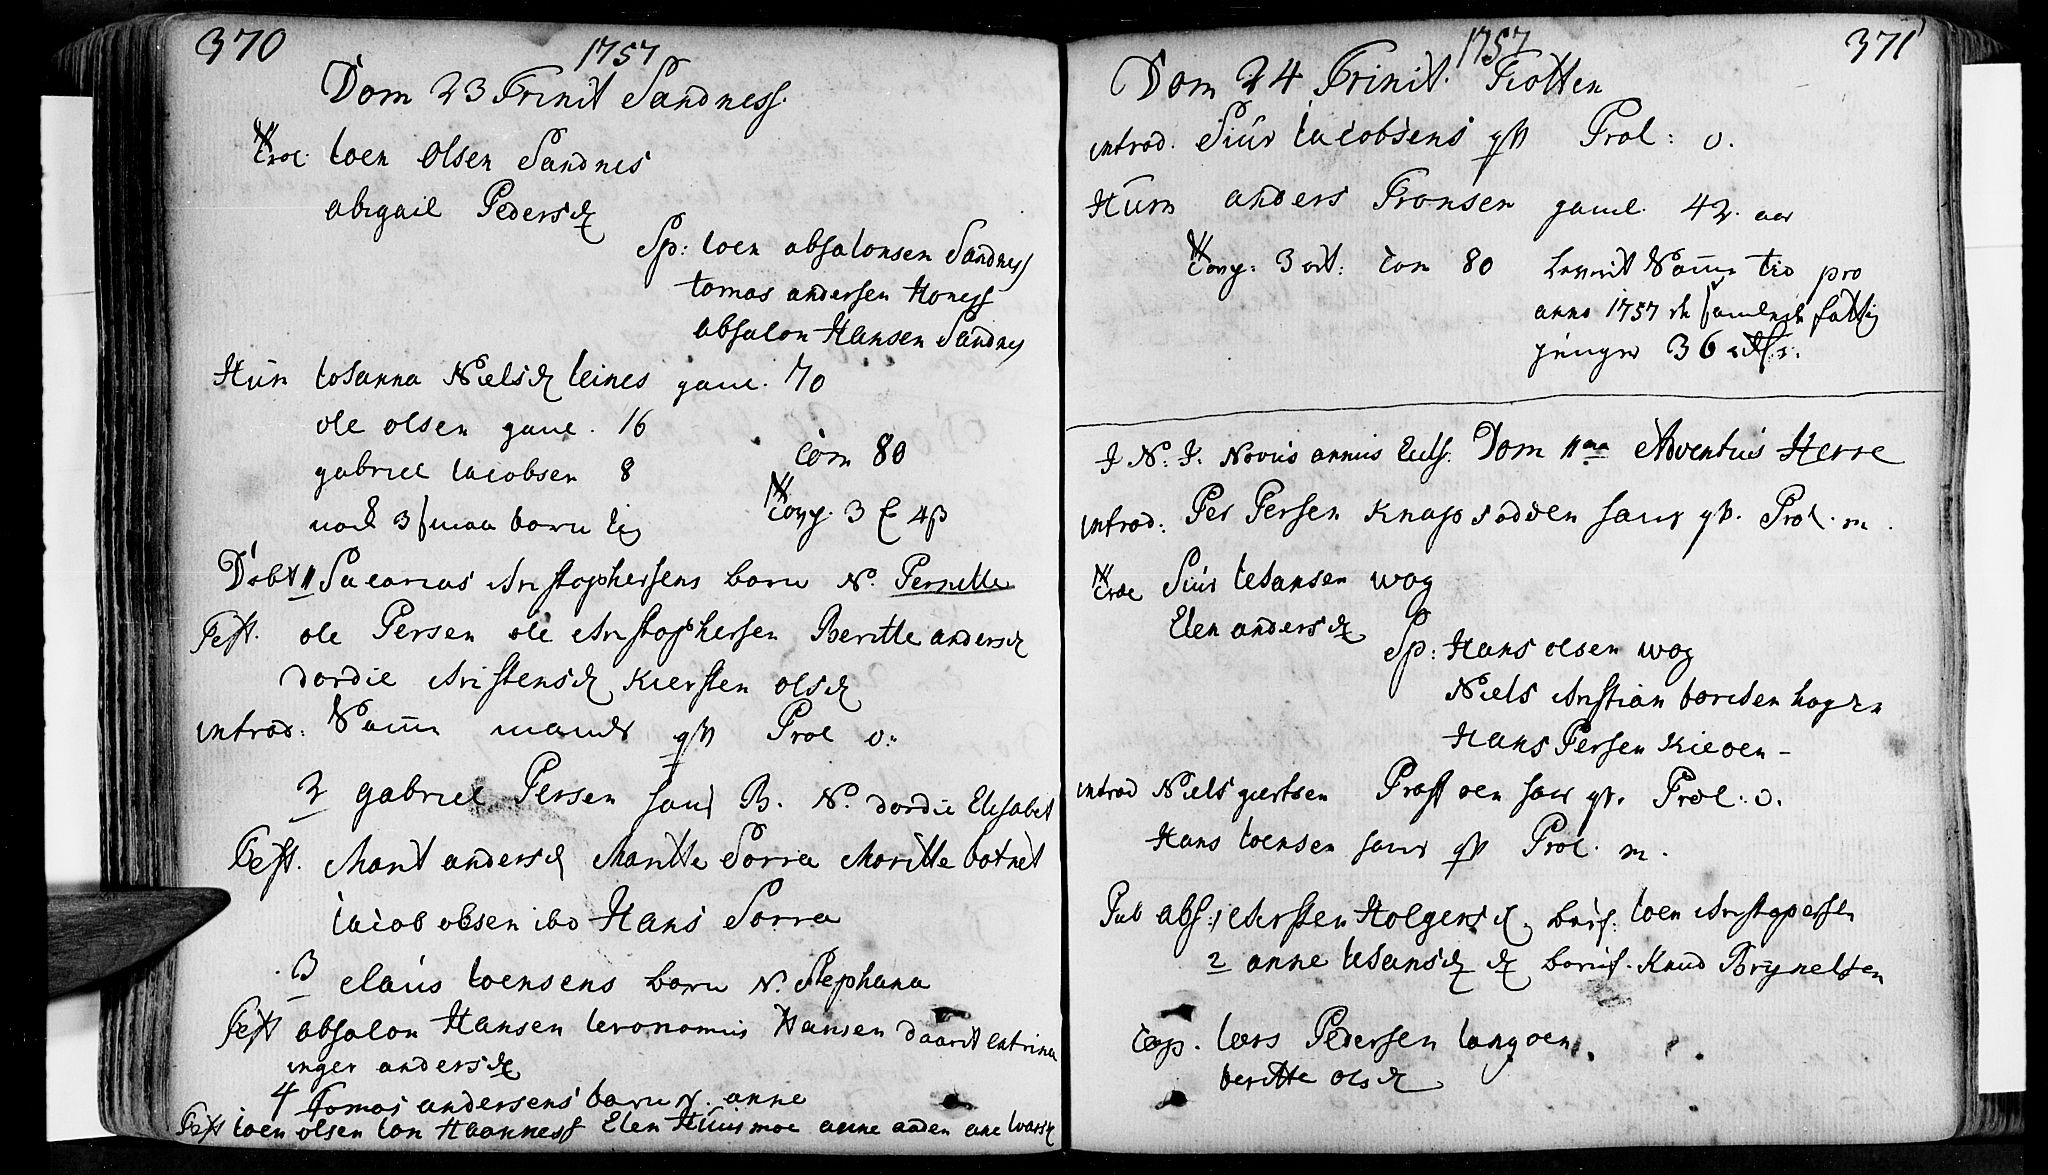 370
1757
Dom 23 Trinit Sandness.
Trol: Ioen Olsen Sandnis
abigail Pedersd
Sp: Ioen absalonsen Sandness
tomas andersen Honess
absalon Hansen Sandnes
Hum Iosanna Nielsd leines gaml. 70
ole olsen gaml. 16
gabriel Iacobsen 8
nock 3 smaa børn lig
Com 80
Cong. 3 £ 4 β
Døbt 1 Sacarias christophersens barn N. Pernille
Test. ole Persen ole christophersen Beritte andersd
dordie christensd Kiersten olsd
introd: Samme mands qv Prol v.
2 gabriel Persen sand B. N. dordie Elisabet
Test. Marit andersd Maritte Sorra Maritte botnet
Iacob olsen ibd Hans Sorra
3 claus Ioensens barn N. Stephana
Test absalon Hansen Ieronomus Hansen daarit catrina
inger andersd
4 tomas andersens barn N. anne
Test ioen olsen Ion Haanness Elen Huusmoe anne anden ane larsd
1757
371
Dom 24 Trinit. Trotten
introd. Siur Iacobsens qv Prol: v.
Hum anders Fransen gaml. 42. aar
Cong: 3 ort: Com 80 Leverit Samme tid pro
anno 1757 de samlede fattig
penger 36
I N. I. Novus annus Eccls. Dom 1ma Adventus Herre
introd: Per Persen Knapsodden sans qv. Prol. m.
Trol Siur Iesansen wog
Elen andersd
Sp: Hans olsen wog
Niels christian boretsen hagen
Hans Persen Kieoen -
introd Niels giertsen Prost oen sans qv. Prol: v.
Hans Ioensen sans qv Prol. m.
Pub abs: 1 chirsten Holgersd, beris: Ioen christopersen
2 anne Iesansd d beris. Knud Brynelsen
Cop. laers Pedersen langoen
beritte olsd